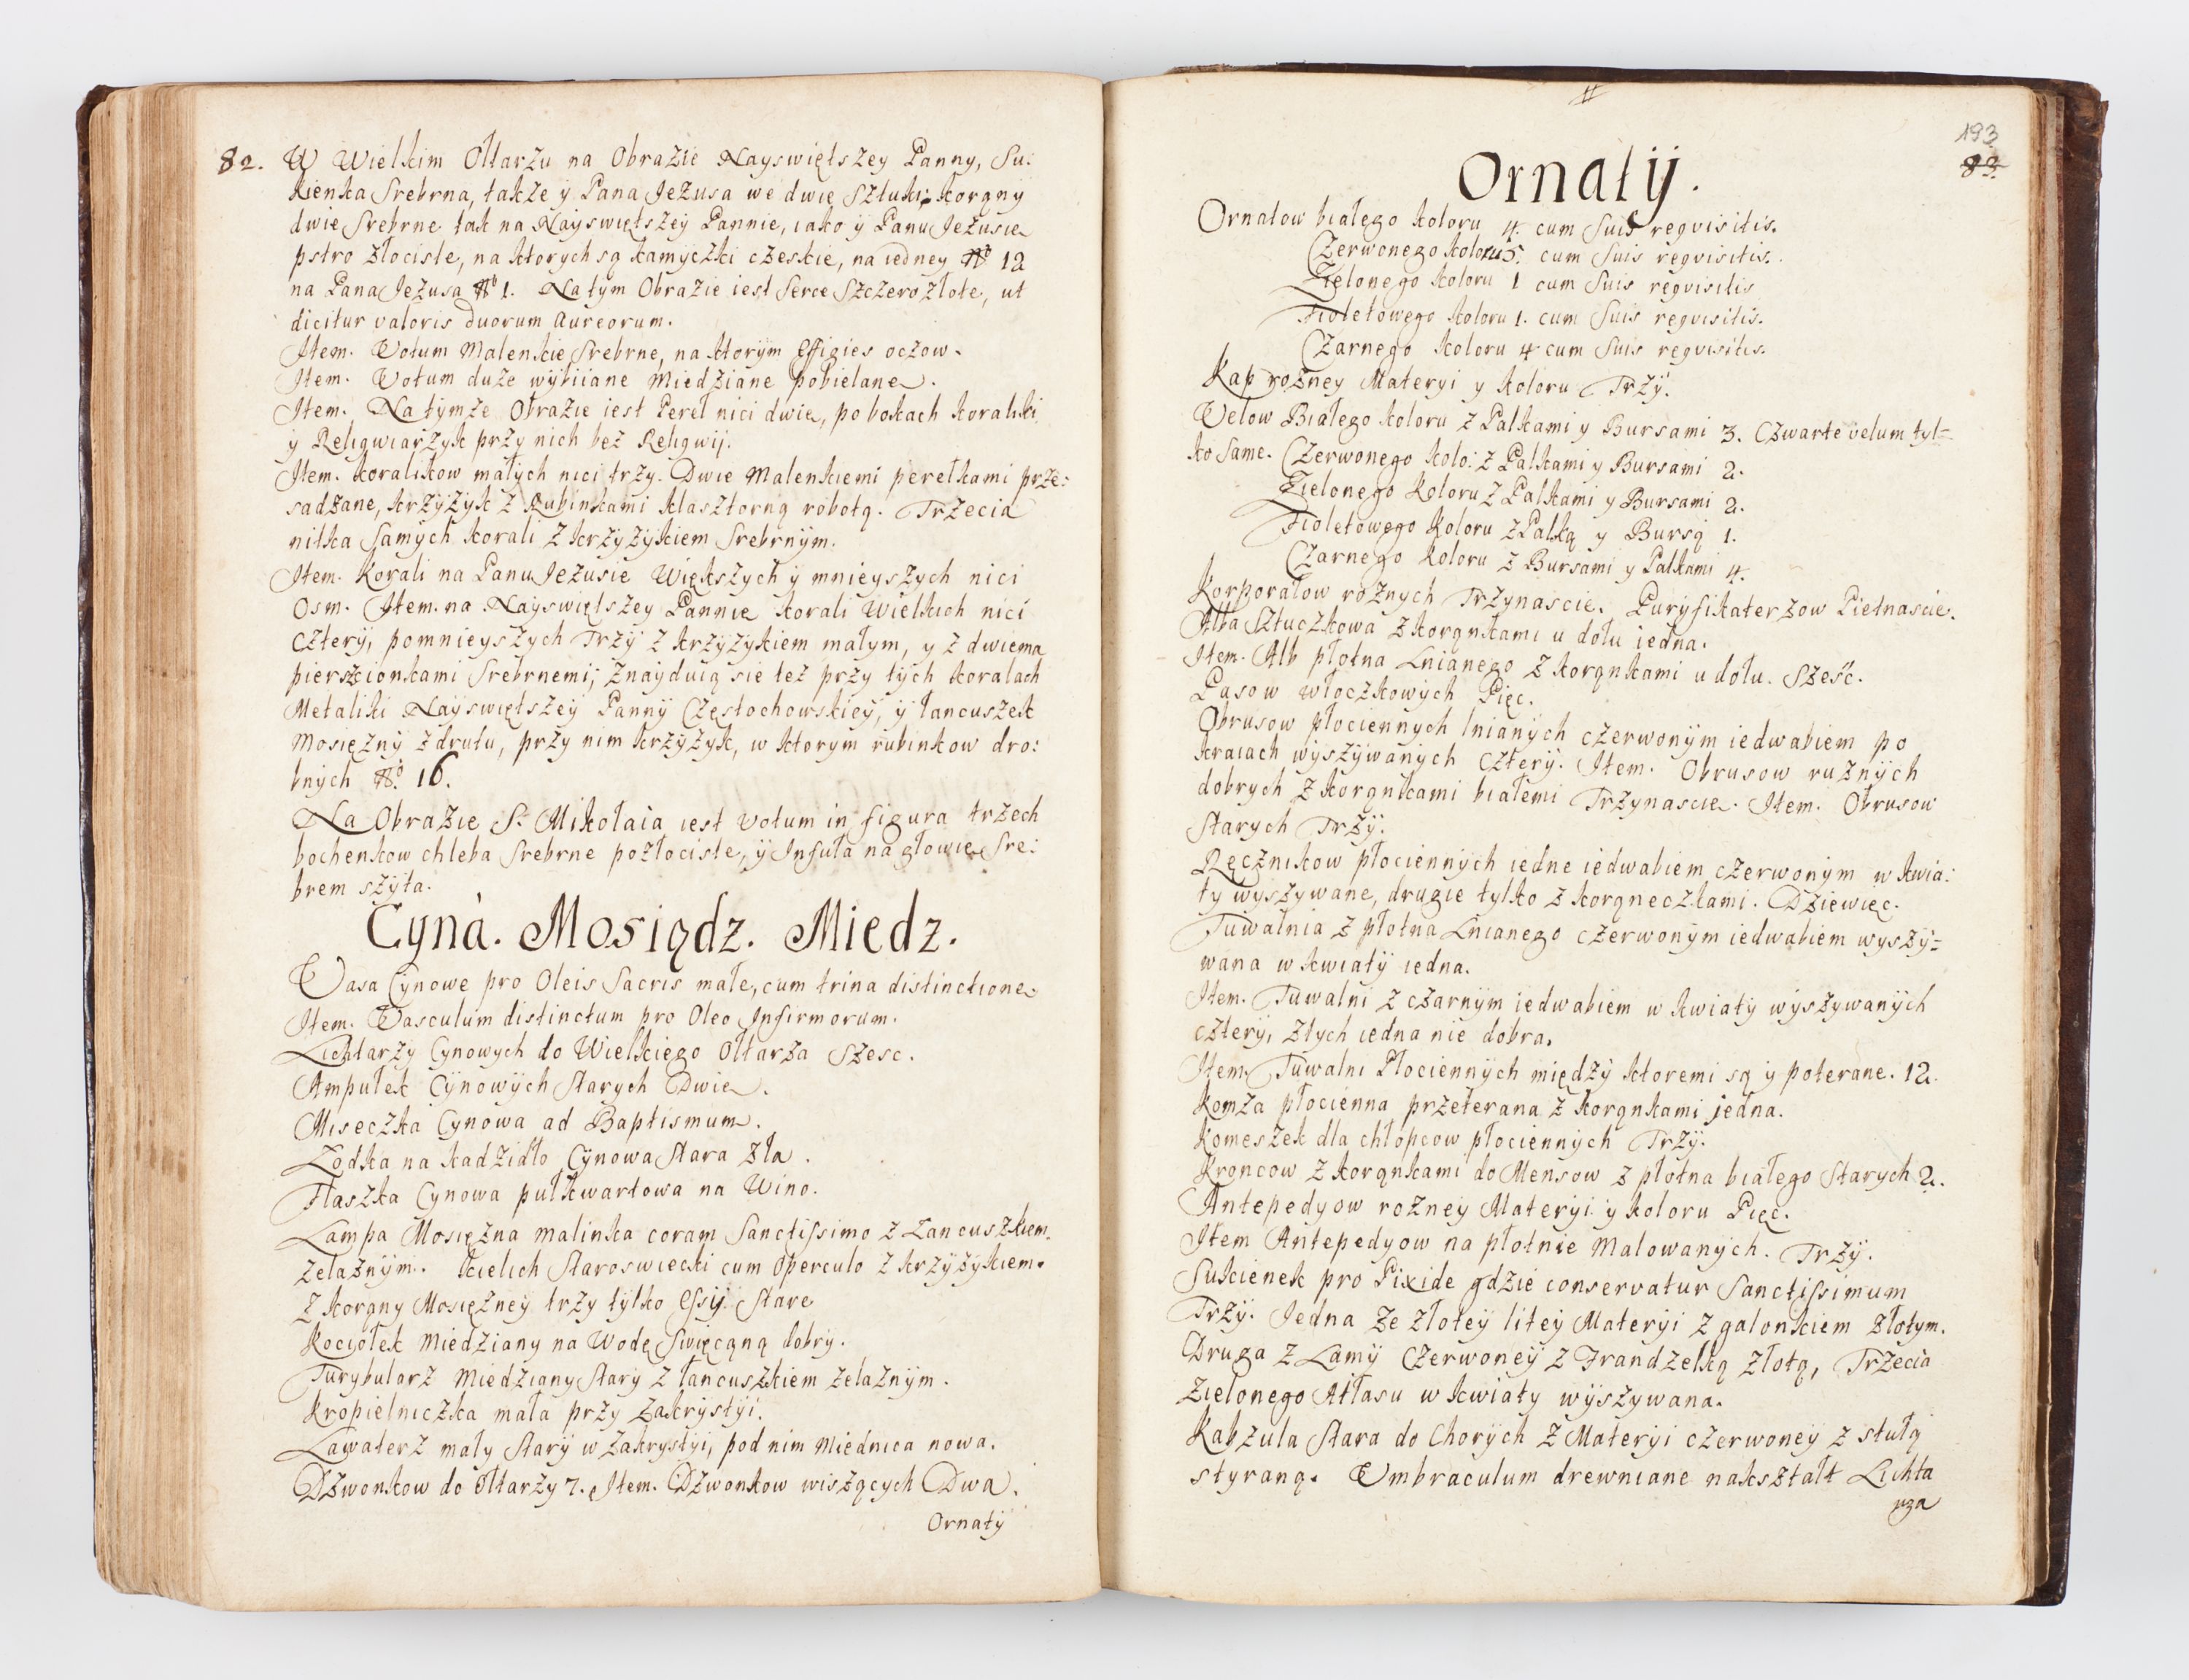 82. W Wielkim Ołtarzu na Obrazie Nayswiętszey Panny, Su:
kienka Srebrna, także y Pana Jezusa we dwię Sztuki; korąny
dwie Srebrne tak na Nayswiętszey Pannie, iako ÿ Panu Jezusie
pstro złociste, na ktorych są kamyczki czeskie, na iedney No 12
na Pana Jezusa No 1. Na tym Obrazie iest Serce Szczerozłote, ut
dicitur valoris duorum aureorum.
Item. Votum Malenkie Srebrne, na ktorÿm Effigies oczow.
Item. Votum duże wÿbiiane Miedziane pobielane.
Item. Na tÿmże Obrazie iest Pereł nici dwie, po bokach koraliki
ÿ Religwiarżyk przy nich bez Religwij.
Item. koralikow małych nici trzy. Dwie Malenkiemi perełkami prze:
sadzane, krzyżyk z Rubinkami klasztorną robotą. Trzecia
nitka Samÿch korali z krzyżykiem Srebrnÿm.
Item. Korali na Panu Jezusie Większych ÿ mnieyszych nici
Osm. Item. na Nayswiętszey Pannie korali Wielkich nici
Cztery, pomnieyszych Trzÿ z krzyżykiem małym, y z dwiema
pierszcionkami Srebrnemi; znayduią sie też przy tÿch koralach
Metaliki Nayswiętszey Panny Częstochowskieÿ, ÿ łancuszek
Mosiężnÿ z drutu, przy nim krzÿżÿk, w ktorym rubinkow dro:
bnÿch No. 16.
Na Obrazie S. Mikołaia iest votum in figura trzech
bochenkow chleba Srebrne pozłociste, ÿ Infuła na głowie Sre:
brem szÿta.
Cyna. Mosiądz. Miedz.
Vasa Cynowe pro Oleis Sacris małe, cum trina distinctione
Item. Vasculum distinctum pro Oleo Infirmorum.
Lichtarzy Cynowych do Wielkiego Ołtarza Szesc.
Ampułek Cÿnowÿch Starych Dwie.
Miseczka Cynowa ad Baptismum.
Łodka na kadzidło Cÿnowa Stara zła.
Flaszka Cynowa pułkwartowa na Wino.
Lampa Mosiężna malinka coram Sanctissimo z Łancuszkiem
żelaznÿm. Kielich Staroswiecki cum operculo z krzyżÿkiem.
Z korąny Mosiężneÿ trzy tÿlko essÿ Stare
kociołek Miedziany na Wodę Swięcąną dobrÿ.
Turybularz Miedziany Starÿ z łancuszkiem żelaznÿm.
kropielniczka mała przy Zakrÿstÿi.
Lawaterz mały Starÿ w Zakrystÿi, pod nim Miednica nowa.
Dzwonkow do ołtarzy 7. Item. Dzwonkow wiszących Dwa.
Ornatÿ
193
83.
Ornatÿ.
Ornatow białego koloru 4. cum Suis reqvisitis.
Czerwonego koloru 5. cum Suis reqvisitis.
Zielonego koloru 1 cum Suis reqvisitis
Fioletowego koloru 1. cum Suis reqvisitis.
Czarnego koloru 4 cum Suis reqvisitis.
Kap rożney Materyi y koloru Trzÿ.
Velow Białego koloru z Palkami y Bursami 3. Czwarte velum tyl=
ko Same. Czerwonego kolo: z Palkami y Bursami 2.
Zielonego Koloru z Palkami y Bursami 2.
Fioletowego Koloru z Palką y Bursą 1.
Czarnego koloru z Bursami y Palkami 4.
Korporałow rożnych Trzynascie. Puryfikaterzow Pietnascie.
Alba Sztuczkowa z korąnkami u dołu iedna.
Item. Alb płotna Lnianego z korąnkami u dołu. Szesć.
Pasow włoczkowych Pięc.
Obrusow płociennych lnianÿch czerwonÿm iedwabiem po
kraiach wyszÿwanÿch Czterÿ. Item. Obrusow rużnÿch
dobrych z korąnkami białemi Trzynascie. Item. Obrusow
Starych Trzÿ.
Ręcznikow płociennÿch iedne iedwabiem czerwonÿm w kwia:
ty wyszywane, drugie tylko z korąneczkami. Dziewięc.
Tuwalnia z płotna Lnianego czerwonÿm iedwabiem wyszÿ=
wana w kwiatÿ iedna.
Item. Tuwalni z czarnÿm iedwabiem w kwiatÿ wÿszÿwanÿch
czterÿ, z tych iedna nie dobra.
Item. Tuwalni Płociennÿch międzÿ ktoremi są ÿ poterane. 12.
Komża płocienna przeterana z korąnkami jedna.
Komeszek dla chłopcow płociennÿch Trzÿ.
Kroncow z korąnkami do Mensow z płotna białego Starych 2.
Antepedyow rożneÿ Materyi y koloru Pięc.
Item Antepedyow na płotnie Malowanych. Trzÿ.
Sukienek pro Pixide gdzie conservatur Sanctissimum
Trzÿ. Jedna ze złotey liteÿ Materÿi z galonkiem złotym.
Druga z Lamÿ Czerwoneÿ z Frandzelką złotą, Trzecia
zielonego Atłasu w kwiatÿ wÿszÿwana.
Kapzula Stara do Chorÿch z Materÿi czerwoneÿ z stułą
styraną. Umbraculum drewniane nakształt Lichta
rza